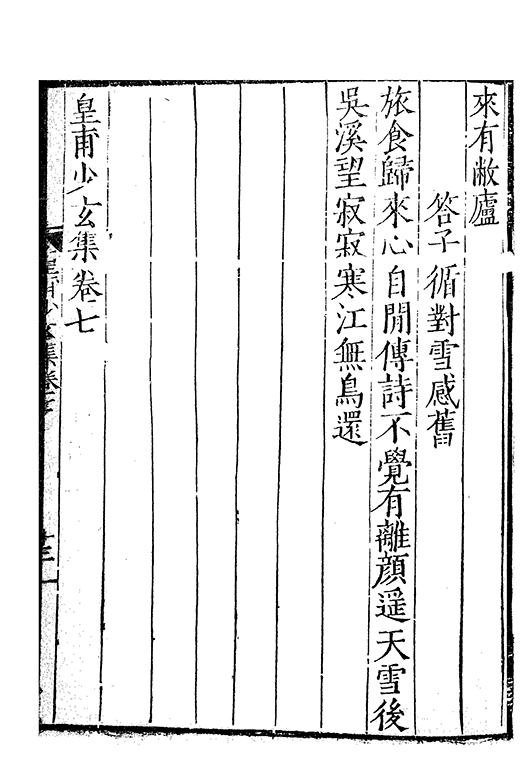 來有敝廬
答子循對雪感舊
旅食歸來心自閒傳詩不覺有離顏遥天雪後
吳溪望寂寂寒江無鳥還
皇甫少玄集卷七